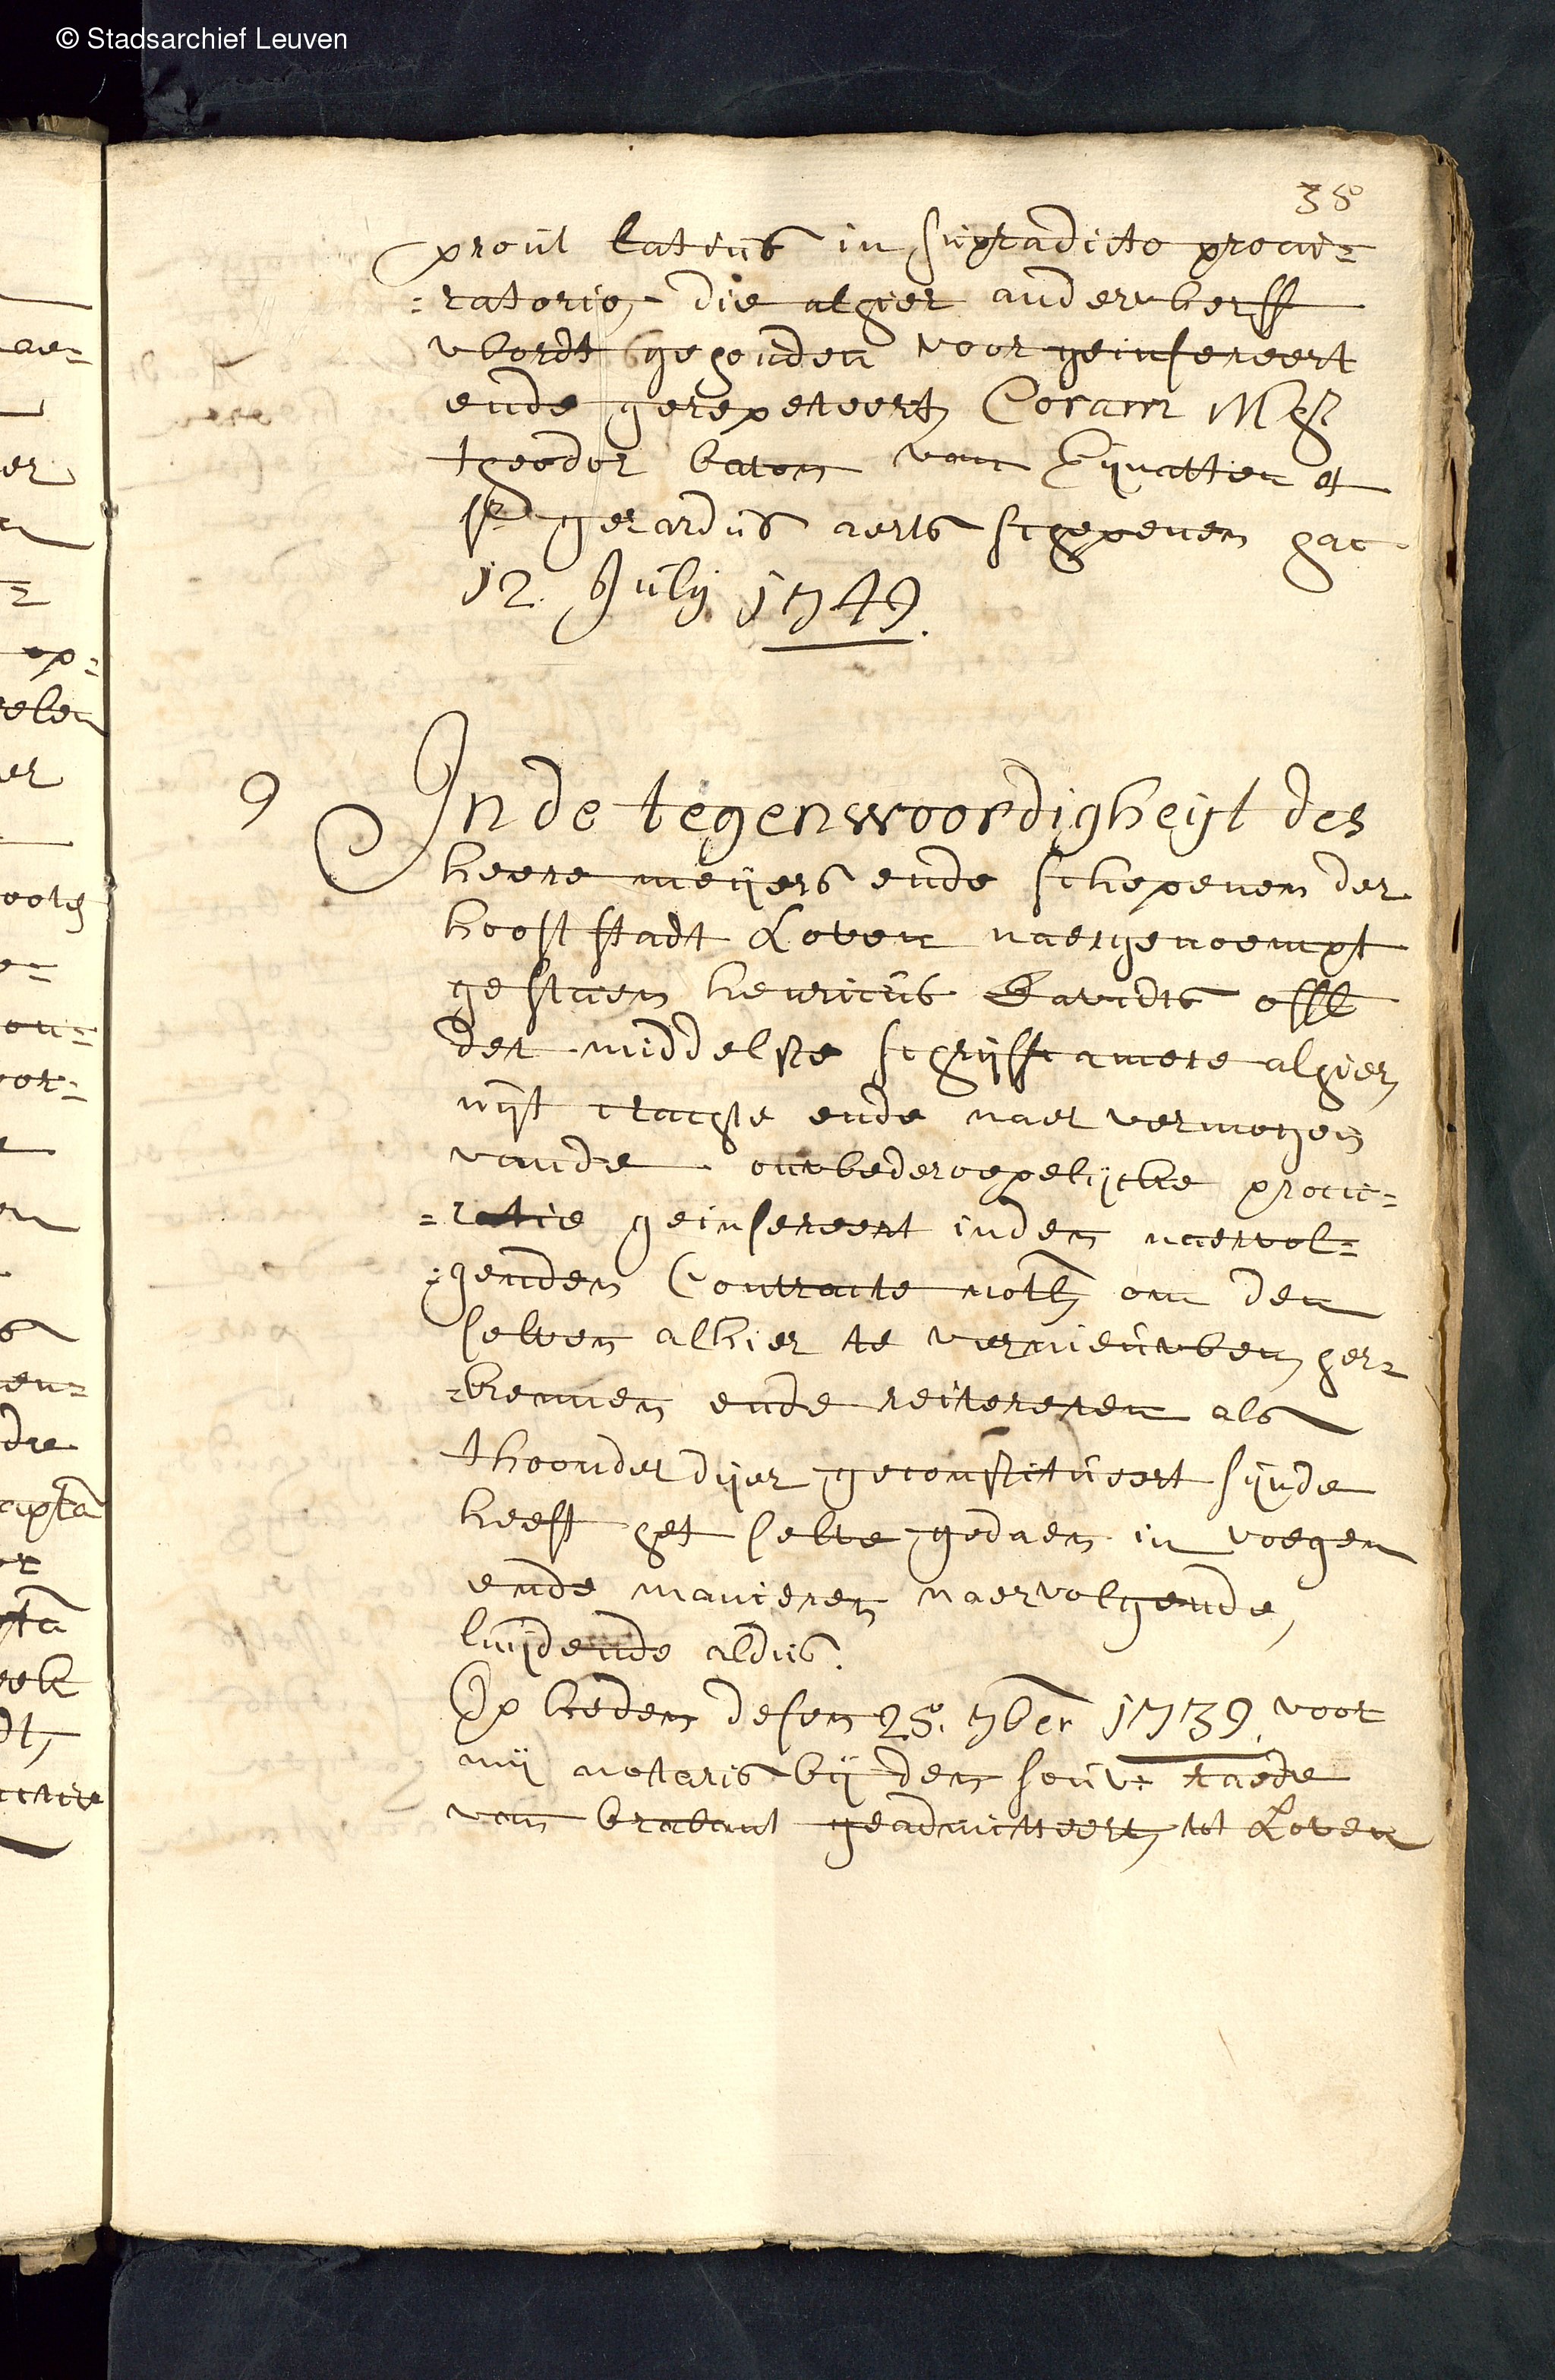 © Stadsarchief Leuven
38
prout latius in supradicto procu=
=ratorio, die alhier anderwerff
wordt gehouden voor geinsereert
ende gerepeteert, Coram
theodor baron van et
sr gerardus aerts schepenen hac
12. July 1749.
9 In de tegenwoordigheijt des
heere meijers ende schepenen der
hooftstadt Loven naergenoempt
gestaen henricus Davidts offl
der middelste schrijffcamere alhier,
uijt crachte ende naer vermogen
vande onwederroepelijcke procu=
=ratie geinsereert inden naervol=
=genden Contracte notl, om den
selven alhier te vernieuwen, her=
=kennen ende reitereren als
thoonder dijer geconstitueert sijnde
heeft het selve gedaen in voegen
ende manieren naervolgende,
luijdende aldus.
Op heden desen 28. 7ber 1739. voor
mij notaris bij den souvn raede
van brabant geadmitteert, tot Loven
ae=
er
=
op=
elen
er
e=
on=
or=
en=
die
or